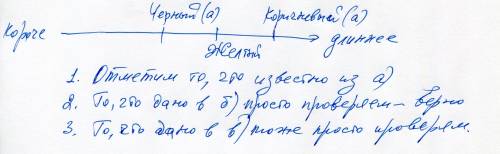 Черный (а) Коричневый (а)
Короче длиннее
Желтый
1. Отметим то, что известно из а)
2. То, что дано в б) просто проверяем - верно
3. То, что дано в в) тоже просто проверяем.